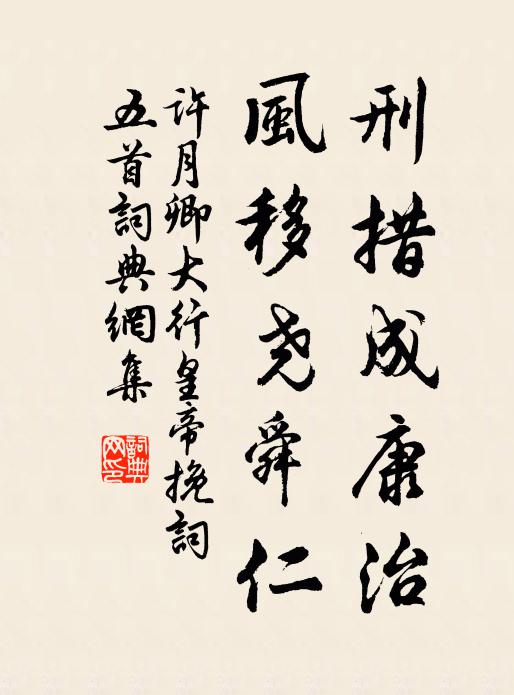 刑措成康治
風移尧舜仁
許月卿大行皇帝挽詞
五首詞典網集
詞典
网印